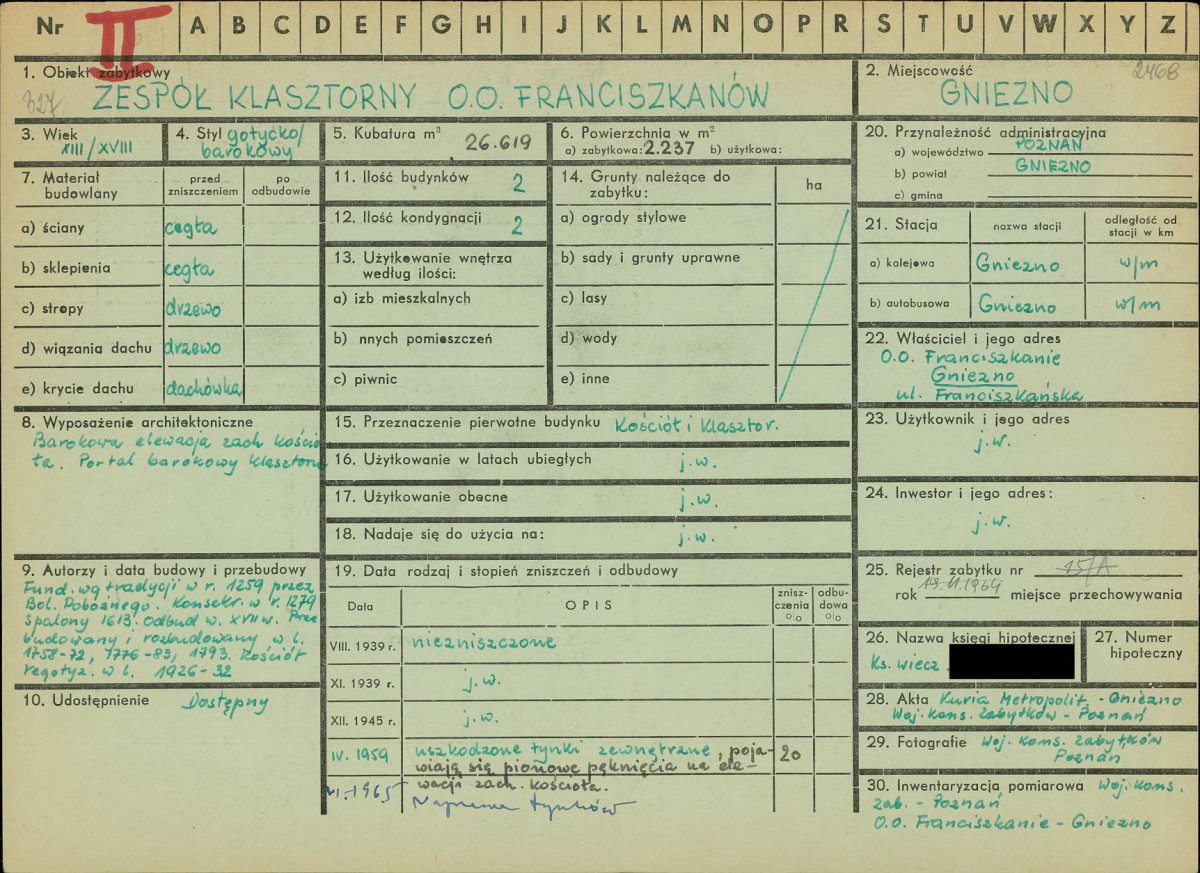 Nr II A B C D E F G H I J K L M N O P R S T U V W X Y Z
1. Obiekt zabytkowy
327 ZESPÓŁ KLASZTORNY O.O. FRANCISZKANÓW
2. Miejscowość 2468
GNIEZNO
3. Wiek
XIII/XVIII
4. Styl gotycko/
barokowy
5. Kubatura m³
26.619
6. Powierzchnia w m²
a) zabytkowa: 2.237 b) użytkowa:
7. Materiał
budowlany
przed
zniszczeniem
po
odbudowie
a) ściany cegła
b) sklepienia cegła
c) stropy drzewo
d) wiązania dachu drzewo
e) krycie dachu dachówka
8. Wyposażenie architektoniczne
Barokowa elewacja zach kościo
ła. Portal barokowy klasztoru
9. Autorzy i data budowy i przebudowy
Fund. wg tradycji w r. 1259 przez
Bol. Pobożnego. Konsekr. w r. 1279
Spalony 1613. Odbud w. XVII w. Prze
budowany i rozbudowany w l.
1758-72, 1776-83, 1793. Kościół
regotyz. w l. 1926-32
10. Udostępnienie Dostępny
11. Ilość budynków 2
12. Ilość kondygnacji 2
13. Użytkowanie wnętrza
według ilości:
a) izb mieszkalnych
b) nnych pomieszczeń
c) piwnic
14. Grunty należące do
zabytku:
ha
a) ogrody stylowe
b) sady i grunty uprawne
c) lasy
d) wody
e) inne
15. Przeznaczenie pierwotne budynku Kościół i Klasztor.
16. Użytkowanie w latach ubiegłych j.w.
17. Użytkowanie obecne j.w.
18. Nadaje się do użycia na: j.w.
19. Data rodzaj i stopień zniszczeń i odbudowy
Data
OPIS
znisz-
czenia
o|o
odbu-
dowa
o|o
VIII. 1939 r. niezniszczone
XI. 1939 r. j.w.
XII. 1945 r. j.w.
IV. 1959 uszkodzone tynki zewnętrzne, poja- 20
wiają się pionowe pęknięcia na ele-
wacji zach. kościoła.
VI. 1965 Naprawa tynków
20. Przynależność administracyjna
a) województwo POZNAŃ
b) powiat GNIEZNO
c) gmina
21. Stacja
nazwa stacji
odległość od
stacji w km
a) kolejowa Gniezno w/m
b) autobusowa Gniezno w/m
22. Właściciel i jego adres
O.O. Franciszkanie
Gniezno
ul. Franciszkańska
23. Użytkownik i jego adres
j.w.
24. Inwestor i jego adres:
j.w.
25. Rejestr zabytku nr 15/A
rok 19.11.1964 miejsce przechowywania
26. Nazwa księgi hipotecznej
Ks. wiecz.
27. Numer
hipoteczny
28. Akta Kuria Metropolit. - Gniezno
Woj. kons. Zabytków - Poznań
29. Fotografie Woj. kons. zabytków
Poznań
30. Inwentaryzacja pomiarowa Woj. kons.
zab. - Poznań
O.O. Franciszkanie - Gniezno